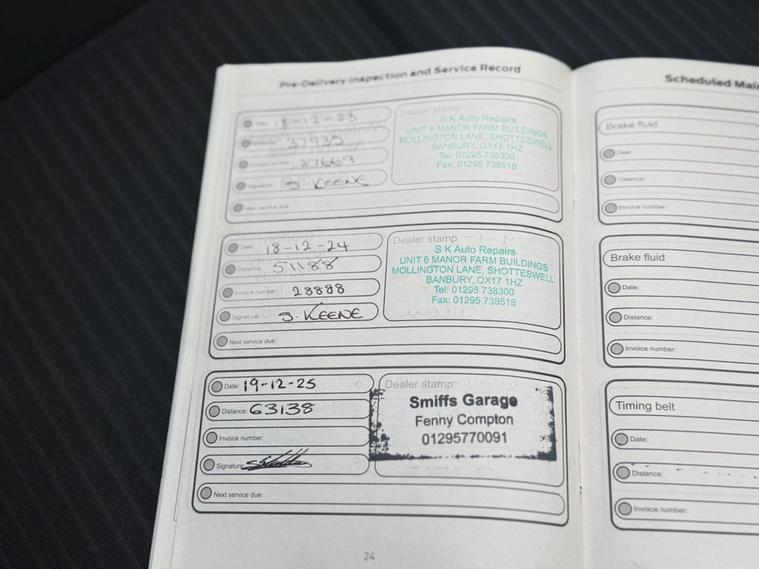 Pre-Delivery Inspection and Service Record
18-12-23
37935
27669
Signature: S. KEENE
Next service due:
Dealer stamp
S K Auto Repairs
UNIT 6 MANOR FARM BUILDINGS
MOLLINGTON LANE, SHOTTESWELL
BANBURY, OX17 1HZ
Tel: 01295 738300
Fax: 01295 738518
Date: 18-12-24
Distance: 51188
Invoice number: 28888
Signature: S. KEENE
Next service due:
Dealer stamp
S K Auto Repairs
UNIT 6 MANOR FARM BUILDINGS
MOLLINGTON LANE, SHOTTESWELL
BANBURY, OX17 1HZ
Tel: 01295 738300
Fax: 01295 738518
Date: 19-12-25
Distance: 63138
Invoice number:
Signature:
Next service due:
Dealer stamp
Smiffs Garage
Fenny Compton
01295770091
24
Scheduled
Brake fluid
Date:
Distance:
Invoice number:
Brake fluid
Date:
Distance:
Invoice number:
Timing belt
Date:
Distance:
Invoice number: